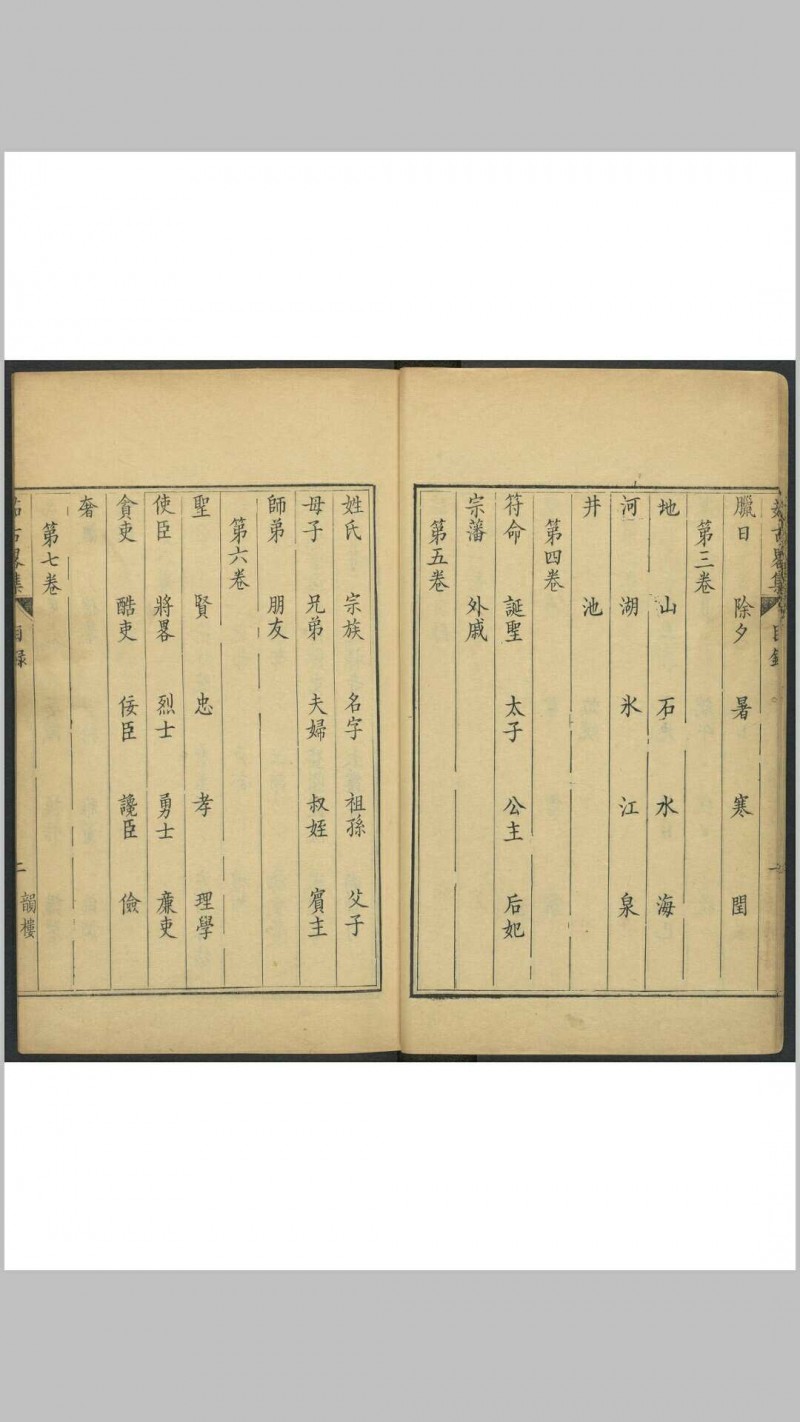 臘日 除夕 暑 寒 閏
第三卷
地 山 石 水 海
河 湖 氷 江 泉
井 池
第四卷
符命 誕聖 太子 公主 后妃
宗藩 外戚
第五卷
姓氏 宗族 名字 祖孫 父子
母子 兄弟 夫婦 叔姪 賓主
師弟 朋友
第六卷
聖 賢 忠 孝 理學
使臣 將畧 烈士 勇士 廉吏
貪吏 酷吏 佞臣 讒臣 儉
奢
第七卷
目録
韻樓